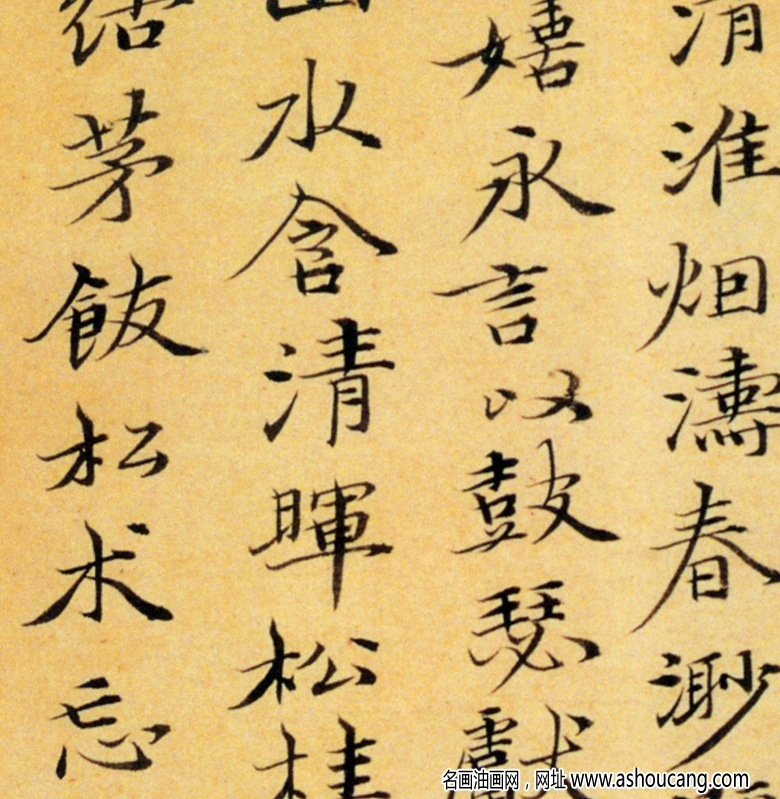 清淮烟濤春渺
嬉永言以鼓瑟獻
水含清暉松桂
結茅飯松术忘
名画油画网，网址 www.ashoucang.com